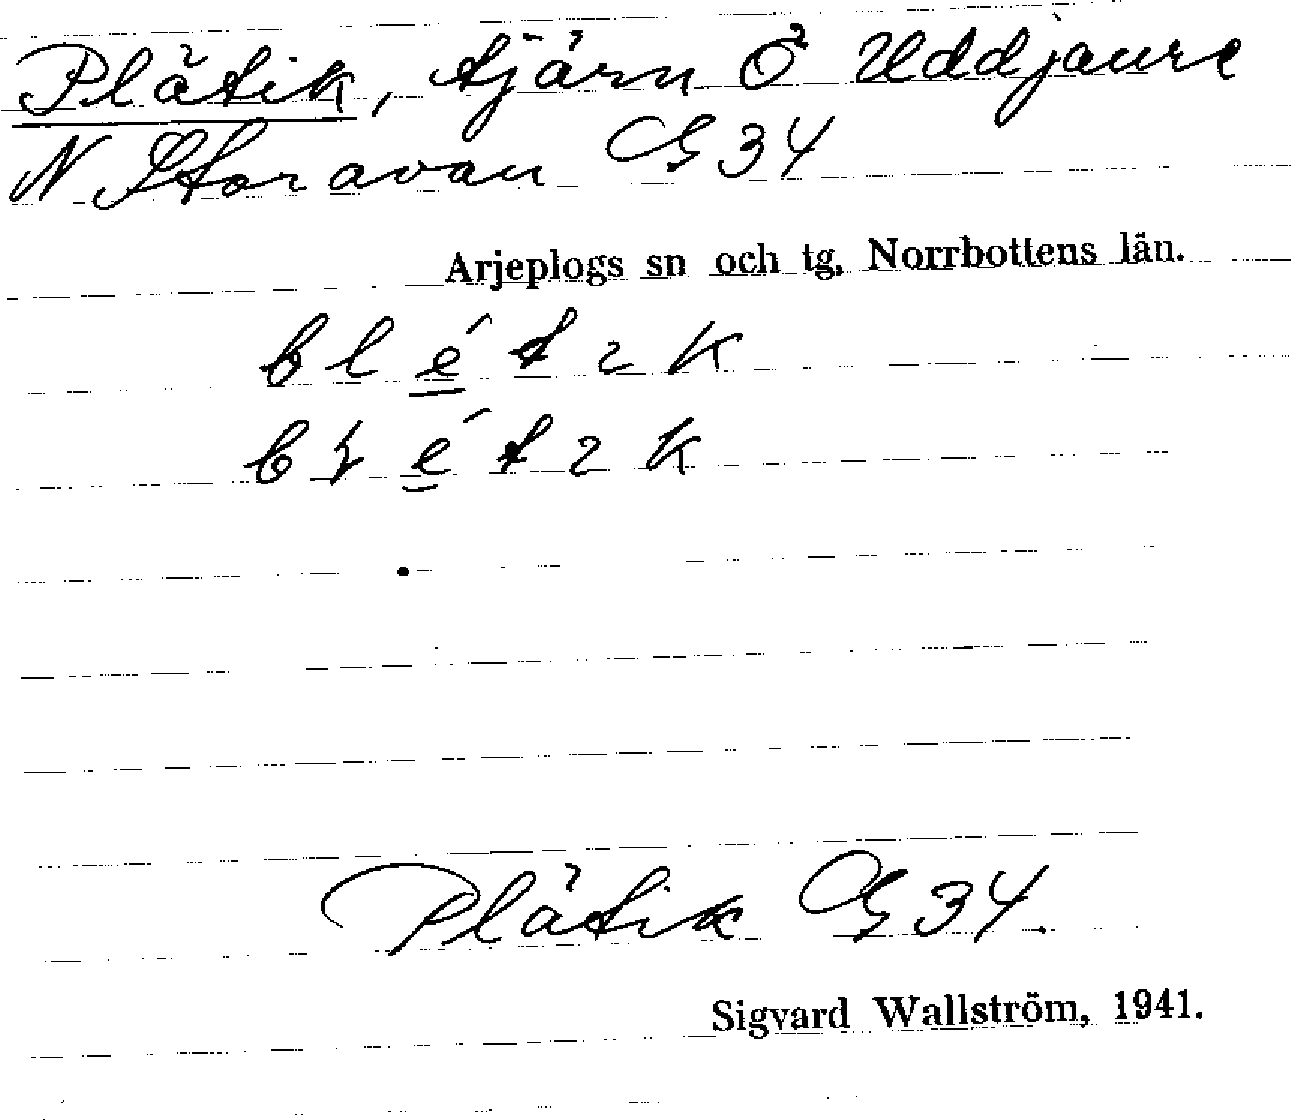 Plätik, tjärn Ö Uddjaure
N. Storavan G34
Arjeplogs sn och tg, Norrbottens län.
Plätik G34.
Sigvard Wallström, 1941.